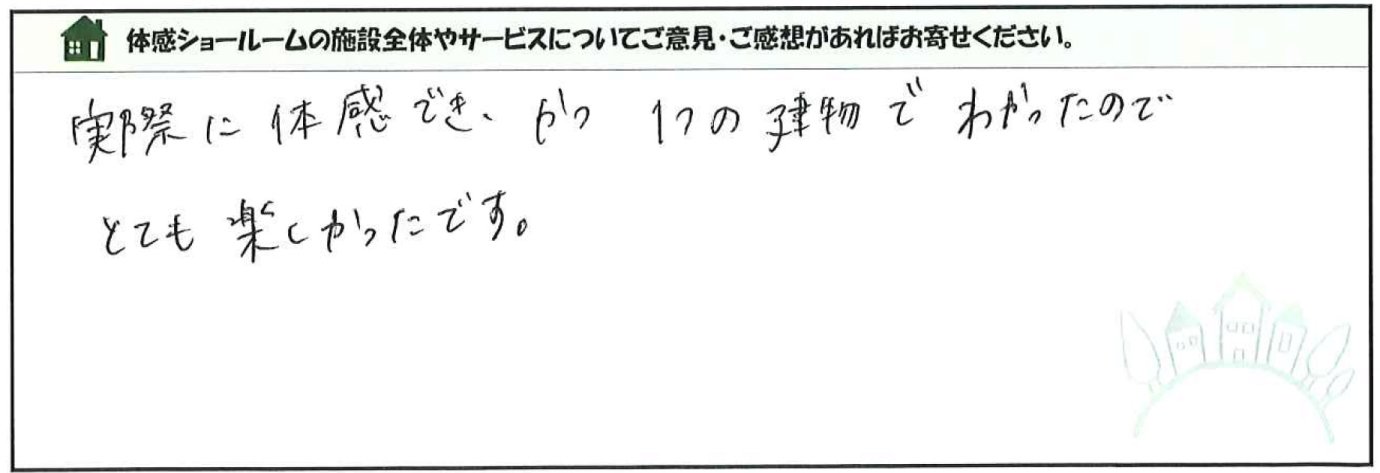 体感ショールームの施設全体やサービスについてご意見・ご感想があればお寄せください。
実際に体感でき、かつ 1つの建物で わかったので
とても楽しかったです。